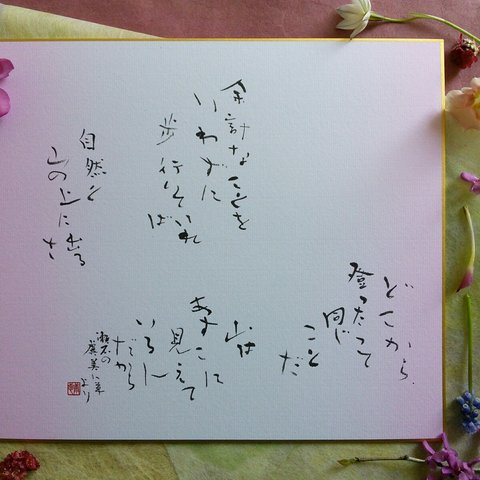 どこから
登ったって
同じ
ことだ
山は
あすこに
見えて
いるん
だから
余計なことを
いわずに
歩行いていれば
自然と
山の上に出るさ
漱石の
虞美人草
より